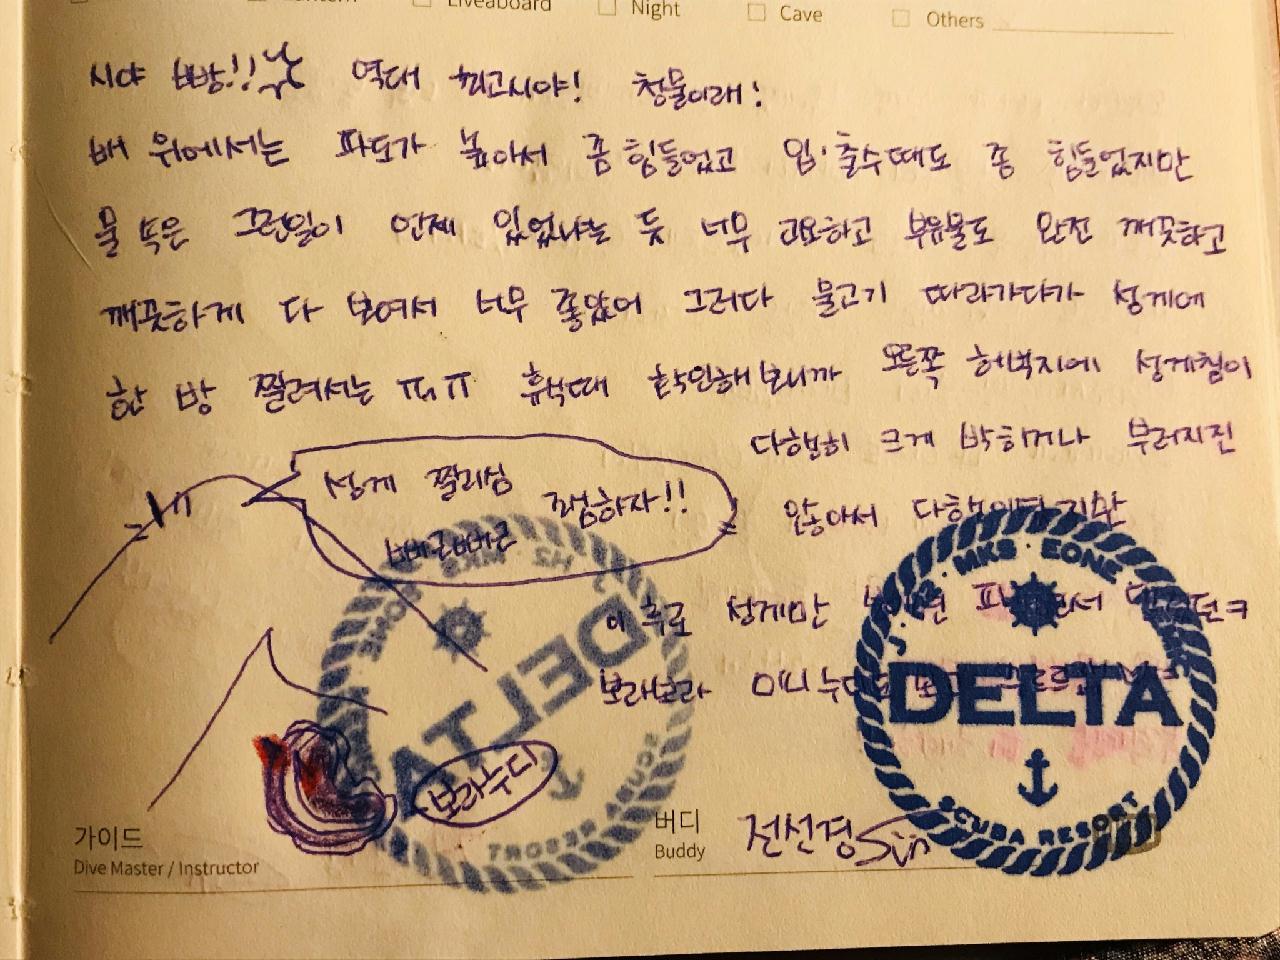 Liveaboard Night Cave Others
시야 빠방!! 역대 최고시야! 청물이래!
배 위에서는 파도가 높아서 좀 힘들었고 입·출수때도 좀 힘들었지만
물 속은 그런일이 언제 있었냐는 듯 너무 고요하고 부유물도 완전 깨끗하고
깨끗하게 다 보여서 너무 좋았어 그러다 물고기 따라가다가 성게에
한 방 찔려서는 ㅠㅠ 휴식때 확인해보니까 오른쪽 허벅지에 성게침이
다행히 크게 박히거나 부러지진
않아서 다행이었지만
성게 찔리심 조심하자!!
빠큐빠큐
이 후로 성게만
보라보라 미니
보라누디
DELTA
SCUBA RESORT
MKS EONE
DELTA
SCUBA RESORT
가이드
Dive Master / Instructor
버디
Buddy
전선경 Sun